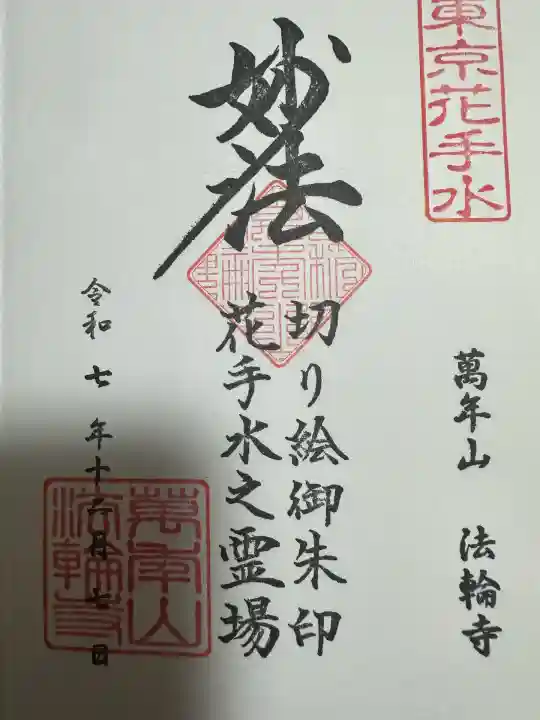 東京花手水
萬年山 法輪寺
妙法
切り絵御朱印
花手水之霊場
萬年山
法輪寺
令和七年十二月七日